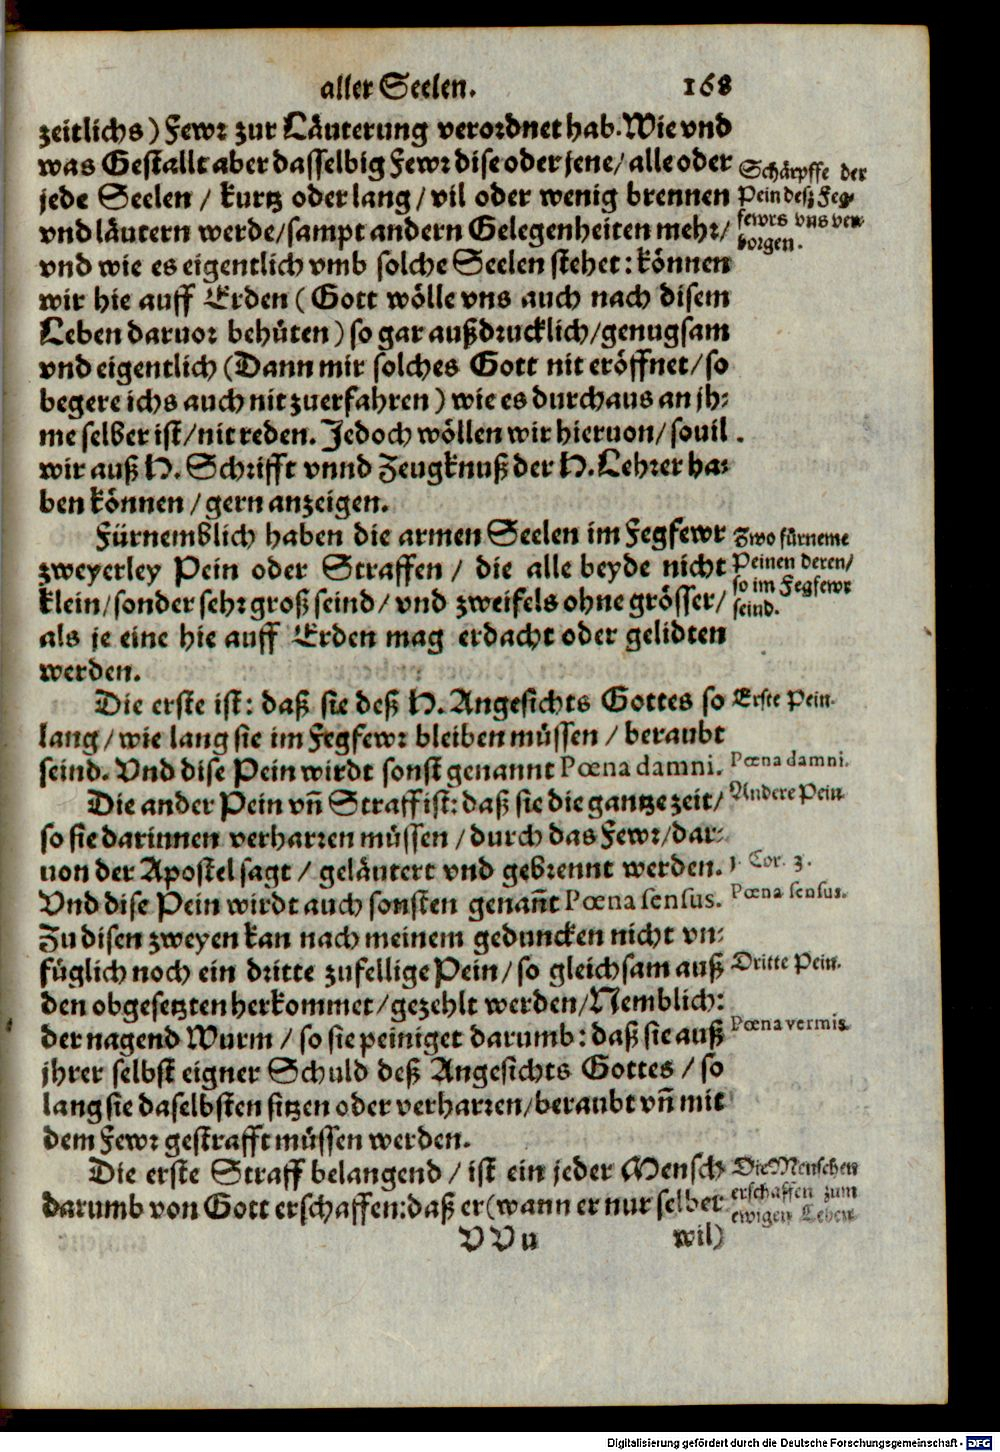 aller Seelen. 168
zeitlichs) Fewr zur Läuterung verordnet hab. Wie vnd
was Gestallt aber dasselbig Fewr dise oder jene/ alle oder
jede Seelen / kurtz oder lang / vil oder wenig brennen
vnd läutern werde/sampt andern Gelegenheiten mehr/
vnd wie es eigentlich vmb solche Seelen stehet: können
wir hie auff Erden (Gott wölle vns auch nach disem
Leben daruor behüten) so gar außdrucklich/genugsam
vnd eigentlich (Dann mir solches Gott nit eröffnet/ so
begere ichs auch nit zuerfahren) wie es durchaus an jh-
me selber ist/nit reden. Jedoch wöllen wir hieruon/ souil
wir auß H. Schrifft vnnd Zeugknuß der H. Lehrer ha-
ben können / gern anzeigen.
Schärpffe der
Pein deß Feg-
fewrs vns ver-
borgen.
Fürnemblich haben die armen Seelen im Fegfewr
zweyerley Pein oder Straffen / die alle beyde nicht
klein/sonder sehr groß seind/ vnd zweifels ohne grösser/
als je eine hie auff Erden mag erdacht oder gelidten
werden.
Zwo fürneme
Peinen deren/
so im Fegfewr
seind.
Die erste ist: daß sie deß H. Angesichts Gottes so
lang/ wie lang sie im Fegfewr bleiben müssen / beraubt
seind. Vnd dise Pein wirdt sonst genannt Pœna damni.
Erste Pein.
Pœna damni.
Die ander Pein vñ Straff ist: daß sie die gantze zeit/
so sie darinnen verharren müssen / durch das Fewr/dar-
uon der Apostel sagt / geläutert vnd gebrennt werden.
Vnd dise Pein wirdt auch sonsten genañt Pœna sensus.
Andere Pein
1. Cor. 3.
Pœna sensus.
Zu disen zweyen kan nach meinem geduncken nicht vn-
füglich noch ein dritte zufellige Pein/ so gleichsam auß
den obgesetzten herkommet/gezehlt werden/Nemblich:
der nagend Wurm / so sie peiniget darumb: daß sie auß
jhrer selbst eigner Schuld deß Angesichts Gottes / so
lang sie daselbsten sitzen oder verharren/beraubt vñ mit
dem Fewr gestrafft müssen werden.
Dritte Pein.
Pœna vermis.
Die erste Straff belangend / ist ein jeder Mensch
darumb von Gott erschaffen: daß er (wann er nur selber
Die Menschen
erschaffen zum
ewigen Leben
VVu wil)
Digitalisierung gefördert durch die Deutsche Forschungsgemeinschaft - DFG